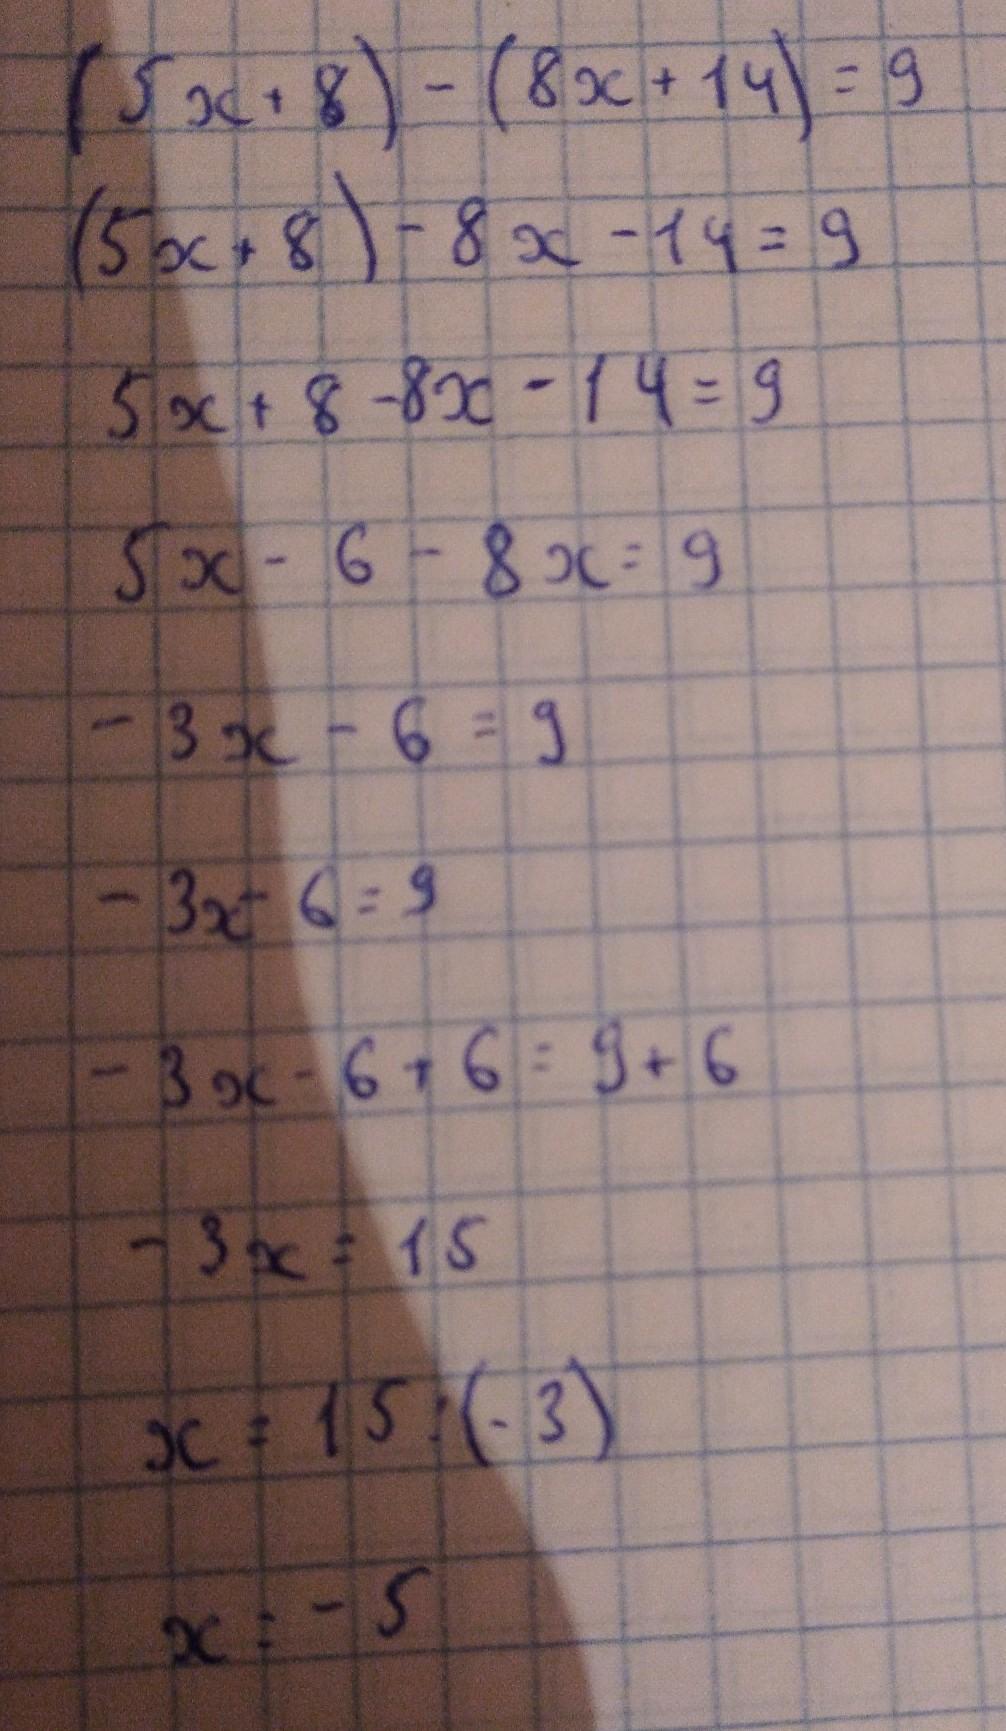 (5x+8)-(8x+14)=9
(5x+8)-8x-14=9
5x+8-8x-14=9
5x-6-8x=9
-3x-6=9
-3x-6=9
-3x-6+6=9+6
-3x=15
x=15:(-3)
x=-5